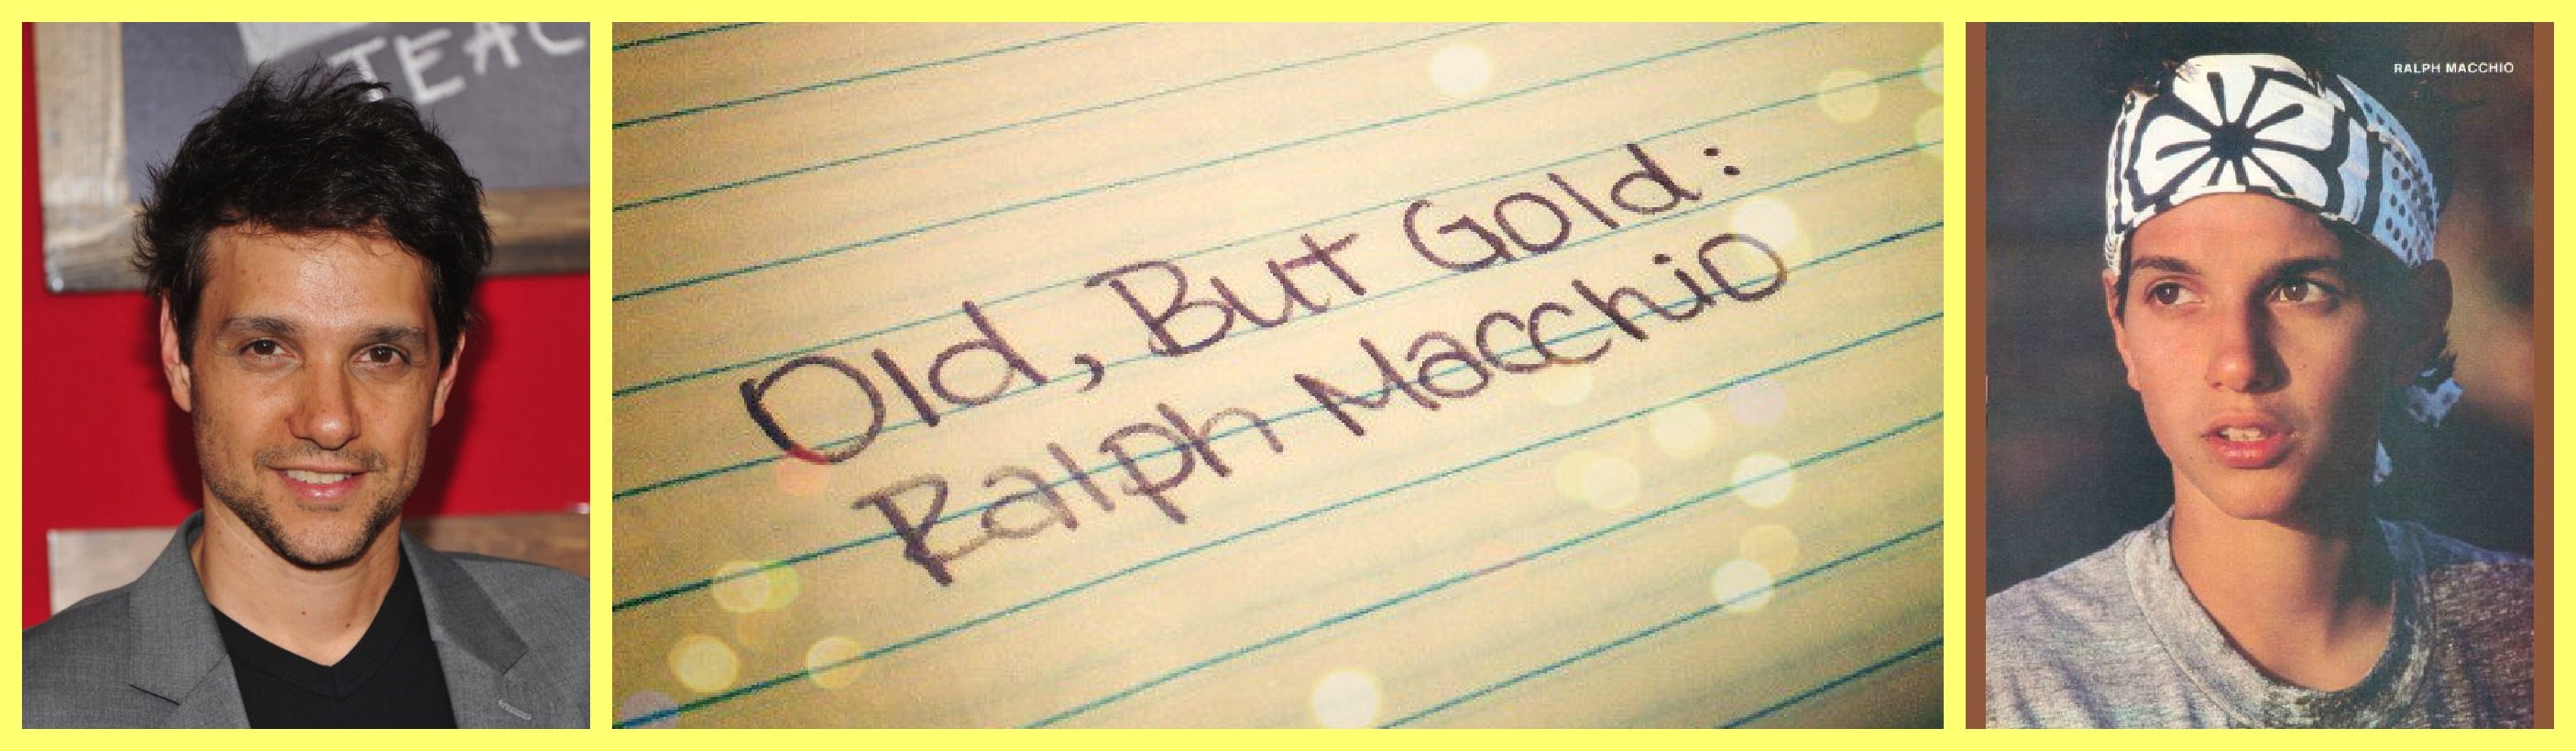 TEAC
Old, But Gold:
Ralph Macchio
RALPH MACCHIO